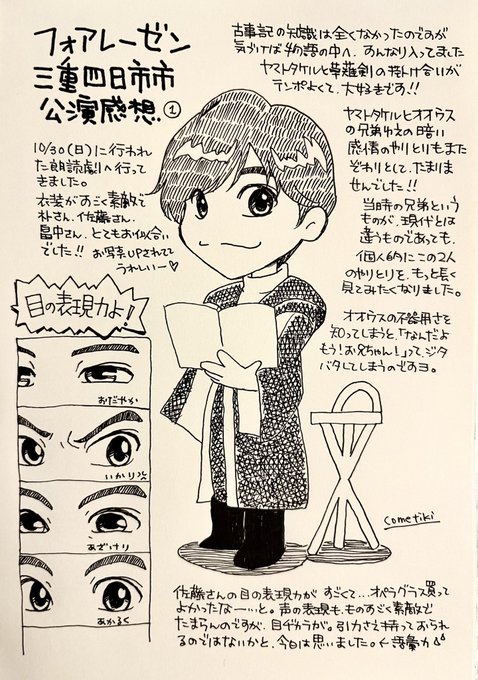 フォアレーゼン
三重四日市市
公演感想.①
10/30(日)に行われ
た朗読劇へ行って
きました。
衣装がすごく素敵で
朴さん、佐藤さん、
畠中さん、とてもお似合い
でした!! お写真UPされてて
うれしいー♡
古事記の知識は全くなかったのですが
気づけば物語の中へ、あんなり入ってました
ヤマトタケルと草薙剣の掛け合いが
テンポよくて、大好きです!!
ヤマトタケルとオオウス
の兄弟ゆえの暗い
感情のやりとりもまた
ぞわりとして、たまりま
せんでした!!
当時の兄弟という
ものが、現代とは
違うものであっても、
個人的にこの2人
のやりとりを、もっと長く
見てみたくなりました。
オオウスの不器用さを
知ってしまうと、「なんだよ
もう!お兄ちゃん!」って、ジタ
バタしてしまうのですヨ。
目の表現力よ!
おだやか
いかり
あざけり
あかるく
cometiki
佐藤さんの目の表現力が すごくて…オペラグラス買って
よかったなー…と。声の表現も、ものすごく素敵で
たまらんのですが、目ぢからが。引力さえ持っておられ
るのではないかと、今日は思いました。←語彙力